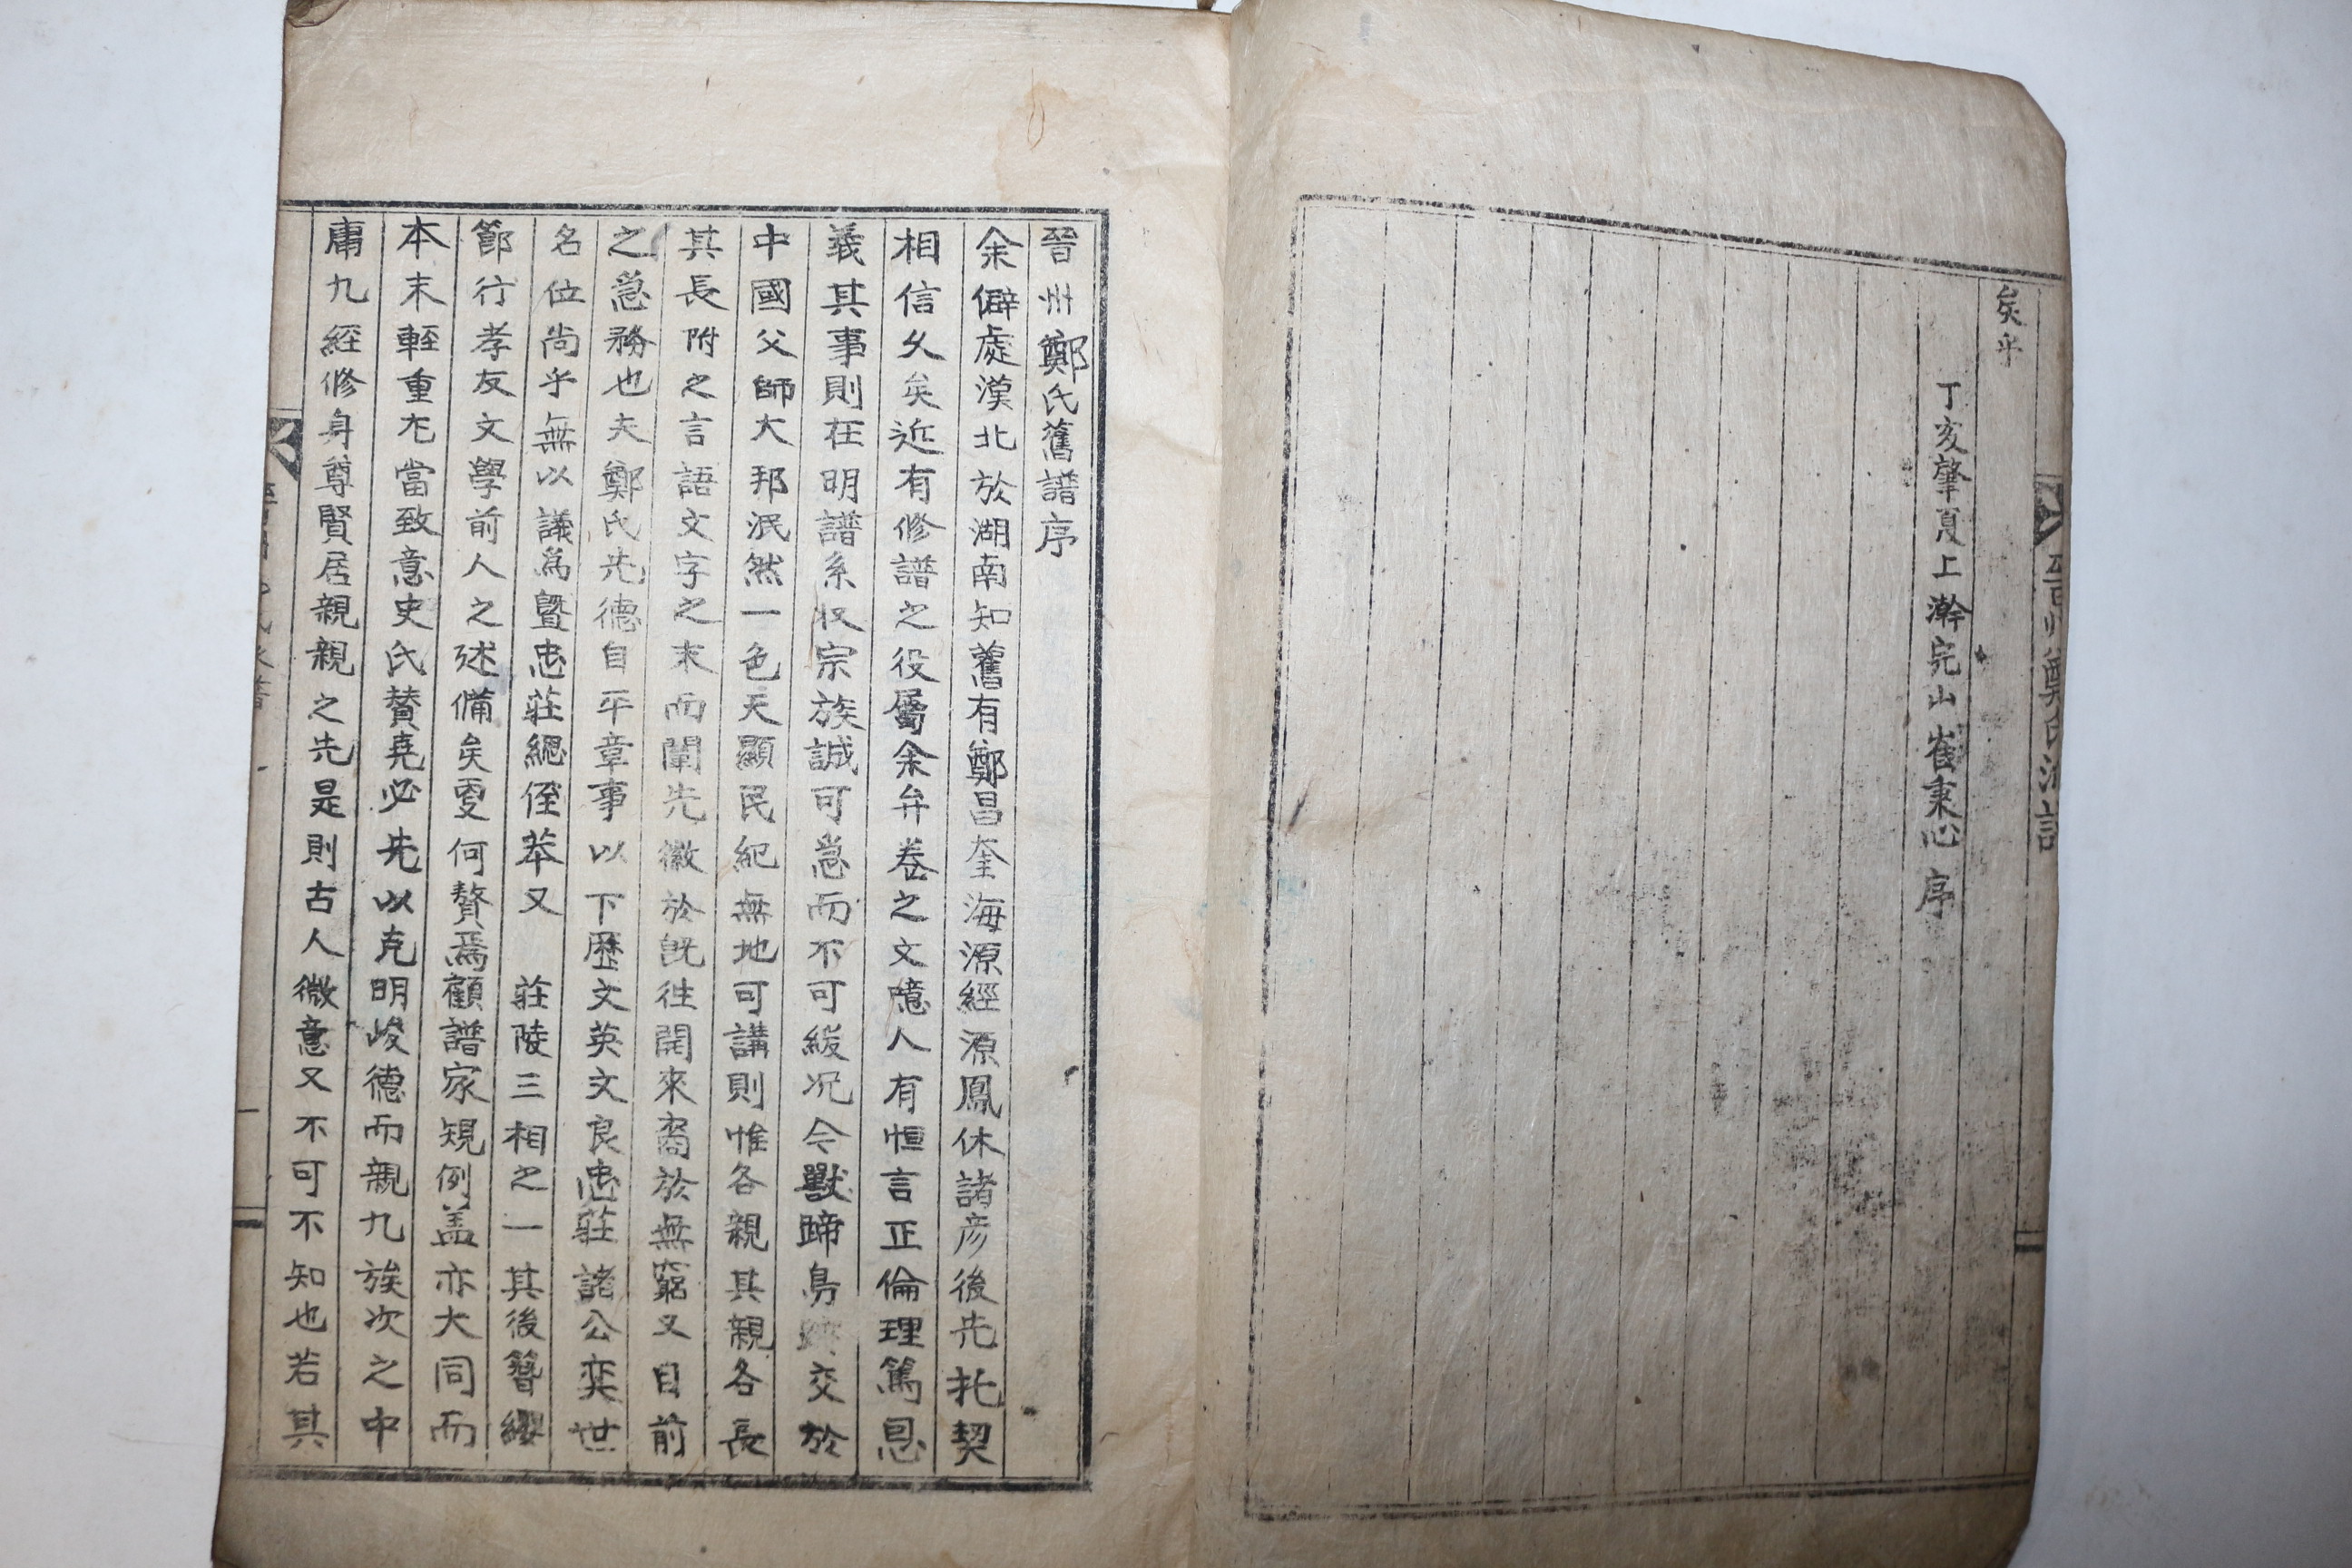 矣乎
丁亥肇夏上澣完山崔秉心序
晉州鄭氏舊譜序
余僻處漢北於湖南知舊有鄭昌奎海源經源鳳休諸彦後先托契
相信久矣近有修譜之役屬余弁卷之文噫人有恒言正倫理篤恩
義其事則在明譜系収宗族誠可急而不可緩况今獸蹄鳥跡交於
中國父師大邦泯然一色天顯民紀無地可講則惟各親其親各長
其長附之言語文字之末而闡先徽於旣徃開來裔於無窮又目前
之急務也夫鄭氏先德自平章事以下歷文英文良忠莊諸公奕世
名位尙乎無以議爲曁忠莊緦侄苯又 莊陵三相之一其後簪纓
節行孝友文學前人之述備矣更何贅焉顧譜家規例盖亦大同而
本末輕重尤當致意史氏賛堯必先以克明峻德而親九族次之中
庸九經修身尊賢居親親之先是則古人微意又不可不知也若其
晉州鄭氏派譜